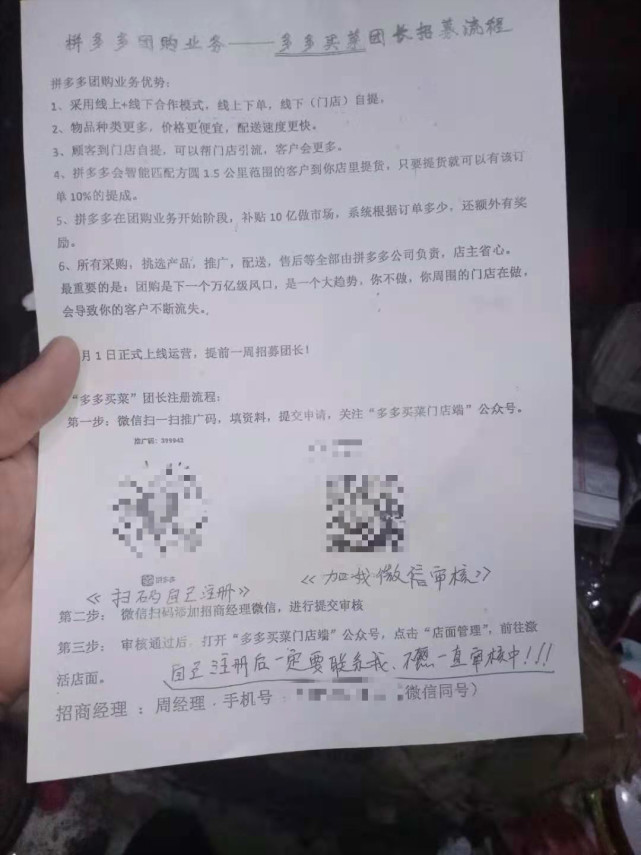 拼多多团购业务——多多买菜团长招募流程
拼多多团购业务优势：
1、采用线上+线下合作模式，线上下单，线下（门店）自提，
2、物品种类更多，价格更便宜，配送速度更快。
3、顾客到门店自提，可以帮门店引流，客户会更多。
4、拼多多会智能匹配方圆 1.5 公里范围的客户到你店里提货，只要提货就可以有该订
单 10%的提成。
5、拼多多在团购业务开始阶段，补贴 10 亿做市场，系统根据订单多少，还额外有奖
励。
6、所有采购，挑选产品，推广，配送，售后等全部由拼多多公司负责，店主省心。
最重要的是：团购是下一个万亿级风口，是一个大趋势，你不做，你周围的门店在做，
会导致你的客户不断流失。
月 1 日正式上线运营，提前一周招募团长！
“多多买菜”团长注册流程：
第一步：微信扫一扫推广码，填资料，提交申请，关注“多多买菜门店端”公众号。
拼多多
《扫码自己注册》
《加我微信审核》
第二步： 微信扫码添加招商经理微信，进行提交审核
第三步： 审核通过后，打开“多多买菜门店端”公众号，点击“店面管理”，前往激
活店面。
自己注册后一定要联系我、不然一直审核中!!!
招商经理 ：周经理．手机号
微信同号）